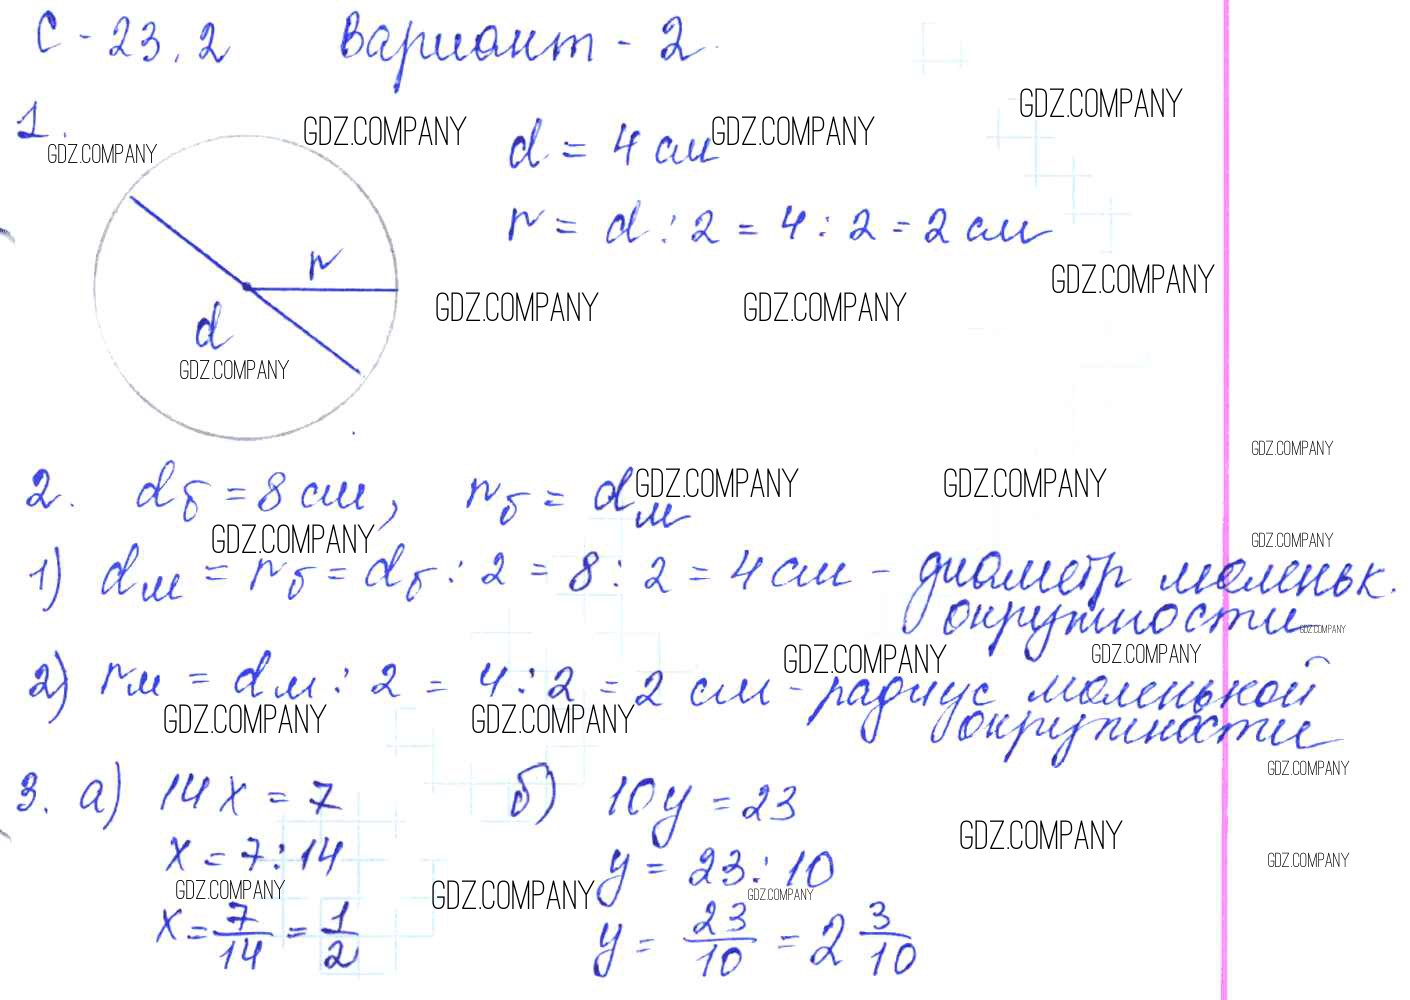 С - 23.2 Вариант - 2.
1.
GDZ.COMPANY GDZ.COMPANY GDZ.COMPANY GDZ.COMPANY
d = 4 см
r = d : 2 = 4 : 2 = 2 см
r
d
GDZ.COMPANY GDZ.COMPANY GDZ.COMPANY
GDZ.COMPANY
GDZ.COMPANY
2. dб = 8 см, rб = dм
GDZ.COMPANY GDZ.COMPANY
GDZ.COMPANY GDZ.COMPANY
1) dм = rб = dб : 2 = 8 : 2 = 4 см - диаметр маленьк.
окружности
GDZ.COMPANY
GDZ.COMPANY GDZ.COMPANY
2) rм = dм : 2 = 4 : 2 = 2 см - радиус маленькой
окружности
GDZ.COMPANY GDZ.COMPANY
GDZ.COMPANY
3. а) 14x = 7 б) 10y = 23
x = 7 : 14 y = 23 : 10
GDZ.COMPANY GDZ.COMPANY
GDZ.COMPANY GDZ.COMPANY GDZ.COMPANY
x = 7/14 = 1/2 y = 23/10 = 2 3/10